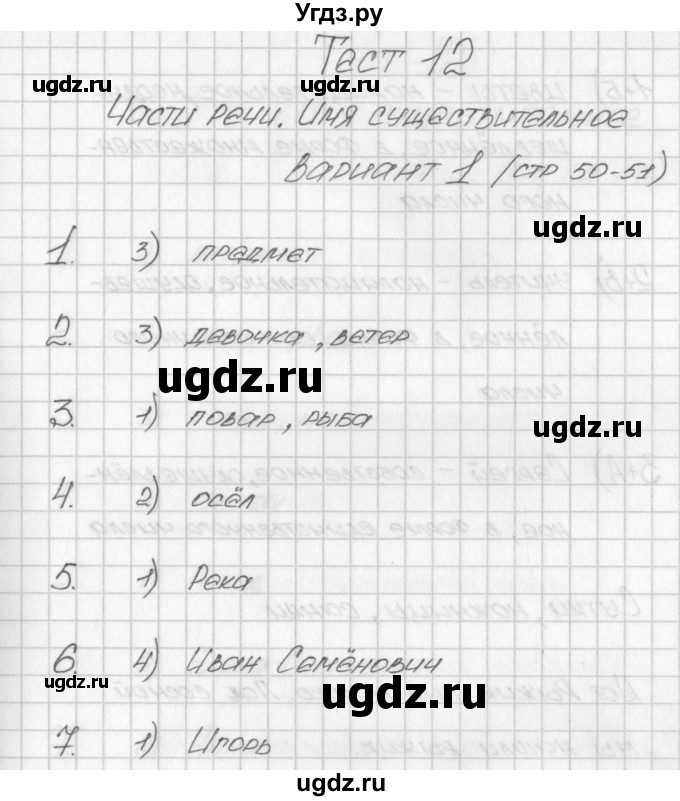 Угдз.ру
Тест 12
ugdz.ru ugdz.ru
Части речи. Имя существительное
Вариант 1 (стр 50-51)
ugdz.ru
1. 3) предмет
ugdz.ru
2. 3) девочка, ветер
ugdz.ru
3. 1) повар, рыба
ugdz.ru
4. 2) осёл
5. 1) Река
6. 4) Иван Семёнович
ugdz.ru ugdz.ru
7. 1) Игорь
ugdz.ru
ugdz.ru